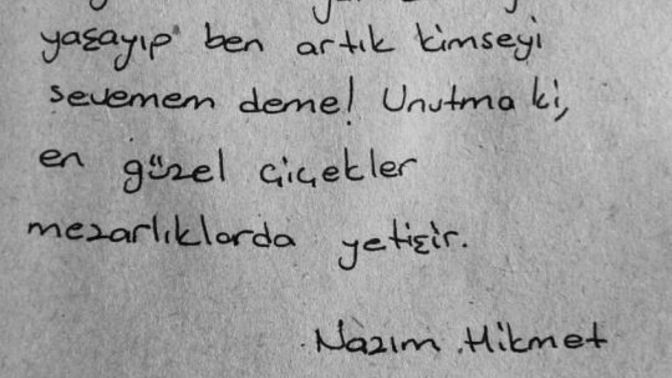 yaşayıp ben artık kimseyi
sevemem deme! Unutma ki,
en güzel çiçekler
mezarlıklarda yetişir.
Nazım Hikmet